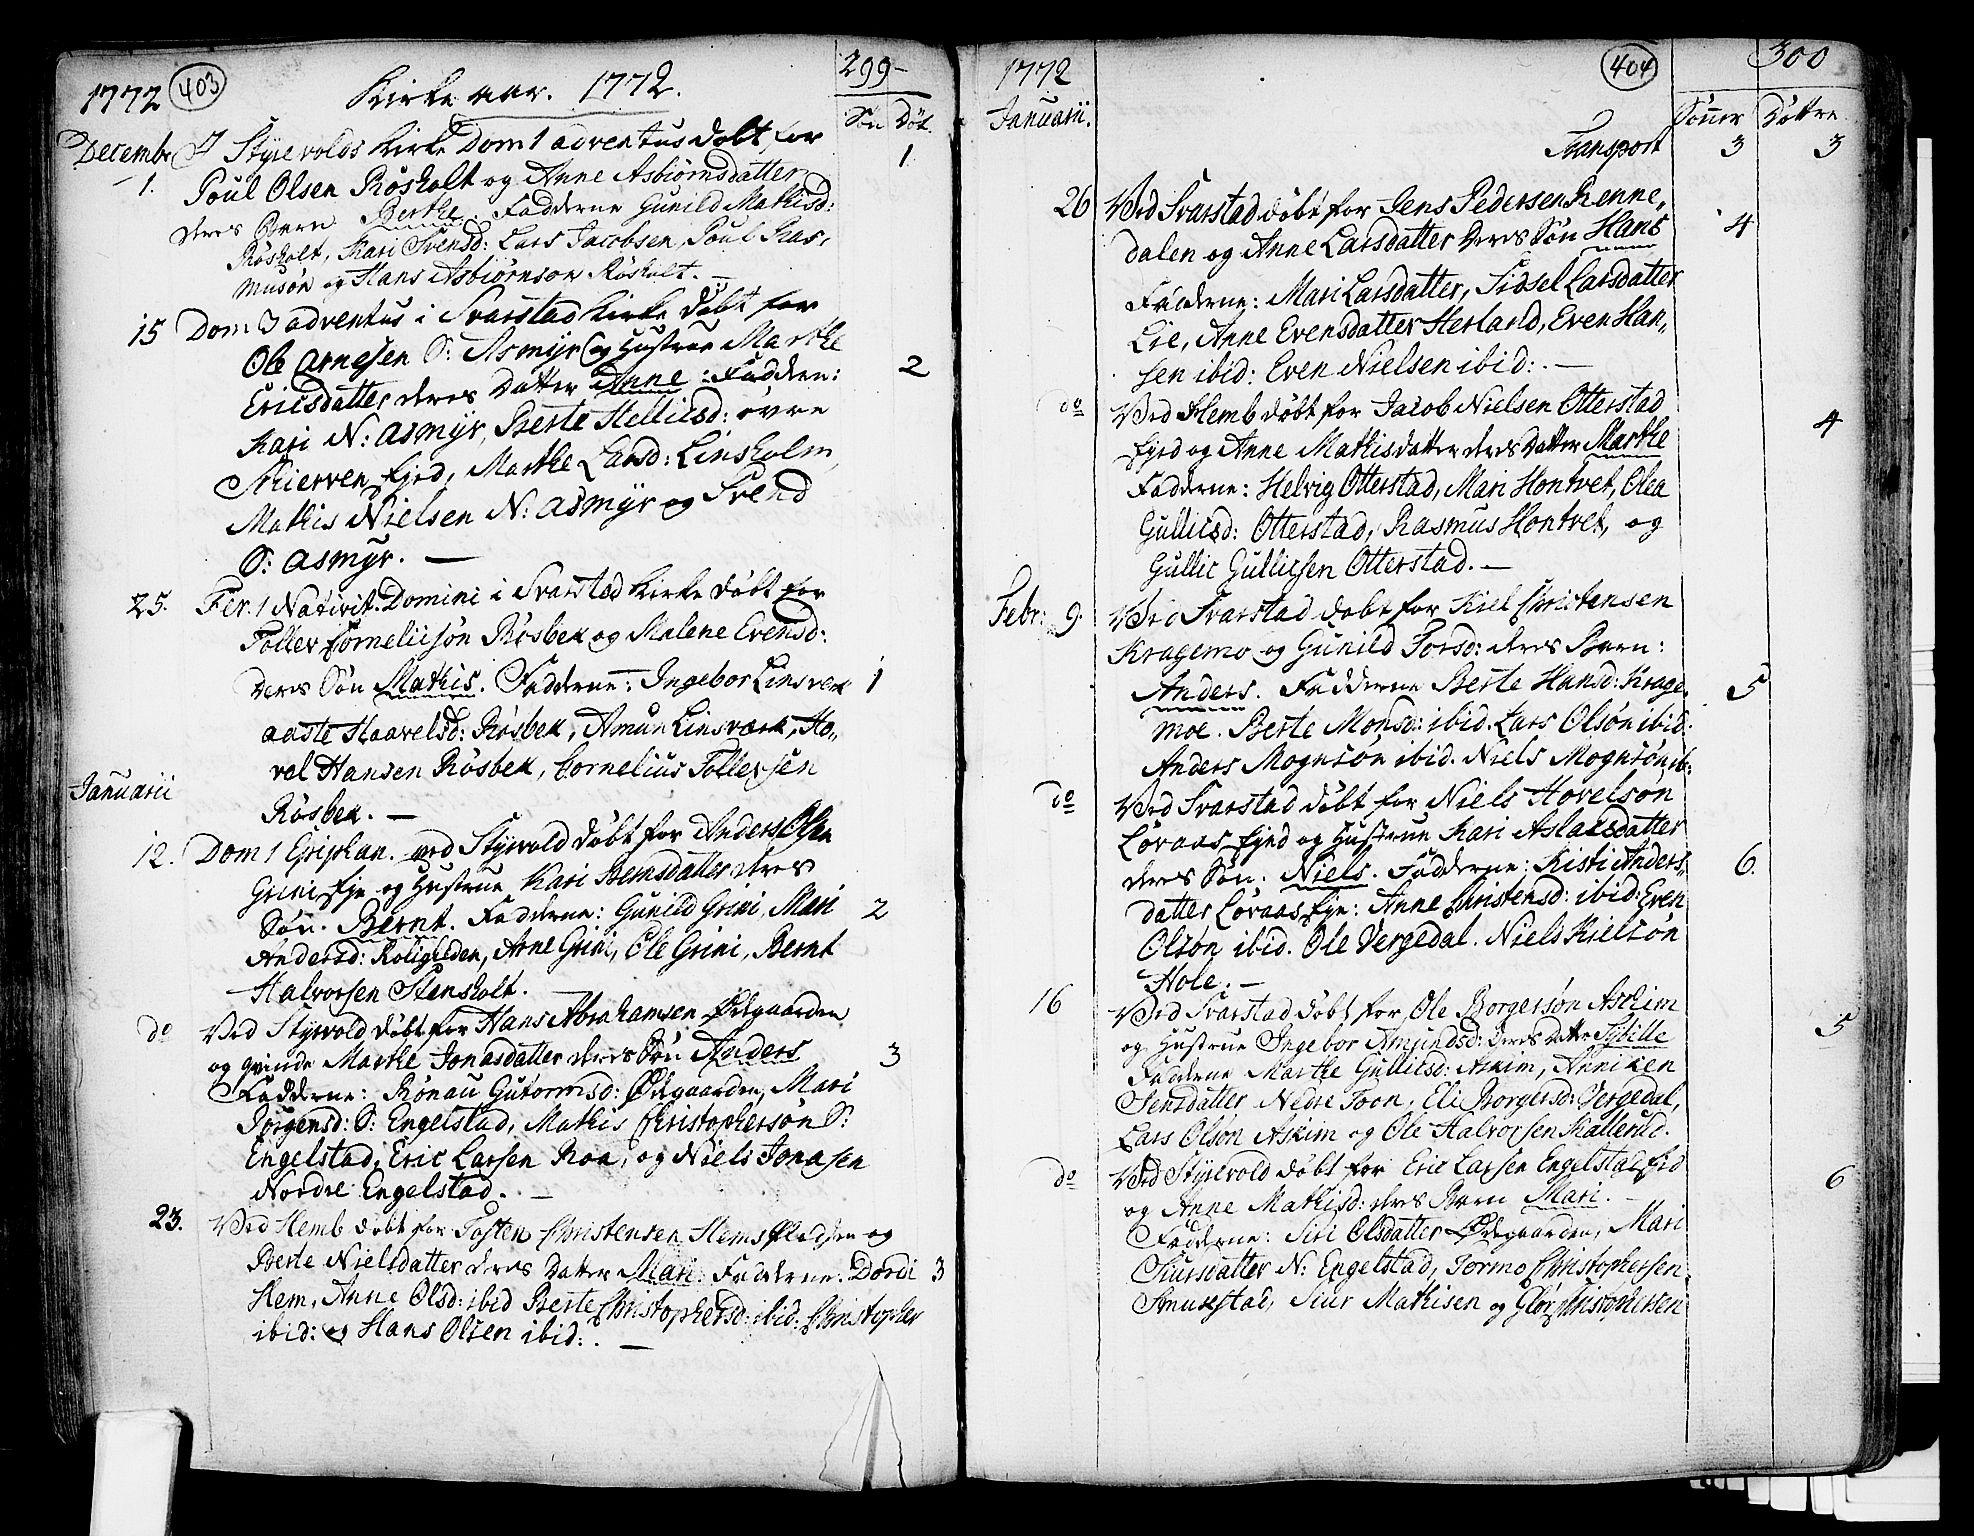 1772 403 Kirke aar. 1772. 299
Søn Døt.
Decembr I Styrvolds Kirke Dom 1 adventus døbt for
1. Poul Olsen Røsholt og Anne Asbiørnsdatter 1
deres Barn Berthe. Fadderne Gunild Mathisd:
Røsholt, Kari Svensd: Lars Jacobsen, Poul Ras,
musøn og Hans Asbiørnson Røsholt. —
15 Dom 3 adventus i Svarstad Kirke døbt for
Ole Arnesen S: Asmyr og Hustrue Marthe
Ericsdatter deres Datter Anne: Fadder: 2
Kari N: Asmyr, Berte Hellicsd: øvre
Skierven Ejed, Marthe Larsd: Linsholm,
Mathis Nielsen N: Asmyr og Svend
S: Asmyr. —
25. Fer. 1 Nativit. Domini i Svarstad Kirke døbt for
Toller Corneliisøn Røsbek og Malene Evensd:
deres Søn Mathis. Fadderne: Ingebor Linsverk 1
aaste Haavelsd: Røsbek, Amun Linsværk, Ho,,
vel Hansen Røsbek, Cornelius Tollefsen
Januarii
Røsbek. —
12. Dom 1 Epiphan. ved Styrvold døbt for Anders Olsen
Grini Eje og Hustrue Kari Berntsdatter deres
Søn. Bernt. Fadderne: Gunild Grini, Mari 2
Andersd: Roligheden, Arne Grini, Ole Grini, Bernt
Halvorsen Stensholt.
do Ved Styrvold døbt for Hans Abrahamsen Ødegaarden
og qvinde Marthe Jonasdatter deres Søn Anders 3
Fadderne: Rønau Gutormsd: Ødegaarden, Mari
Jørgensd: S: Engelstad, Mathis Christophersøn S:
Engelstad, Eric Larsen Roa, og Niels Jonasen
Nordre Engelstad. —
23. Ved Hemb døbt for Tosten Christensen Hems Pladsen og
Berte Nielsdatter deres Datter Mari. Fadderne. Dordi 3
Hem, Anne Olsd: ibid Berte Christophersd: ibid: Christopher
ibid: og Hans Olsen ibid: . —
1772 404 300
Januarii. Sønner Døttre
Transport 3 3
26 Ved Svarstad døbt for Jens Pedersen Renne,,
dalen og Anne Larsdatter deres Søn Hans 4
Fadderne: Mari Larsdatter, Sidsel Larsdatter
Lie, Anne Evensdatter Herland, Even Han,,
sen ibid: Even Nielsen ibid: . —
do Ved Hemb døbt for Jacob Nielsen Otterstad
Ejed og Anne Mathisdatter deres Datter Marthe 4
Fadderne: Helvig Otterstad, Mari Hontvet, Olea
Gullicsd: Otterstad, Rasmus Hontvet, og
Gullic Gullicsen Otterstad. —
Febr: 9. Ved Svarstad døbt for Kiel Christensen
Kragemo og Gunild Torsd: deres Barn:
Anders. Fadderne Berte Hansd: Krage, 5
moe. Berte Monsd: ibid. Lars Olsøn ibid:
Anders Mognsøn ibid. Niels Mognsøn ib:
do Ved Svarstad døbt for Niels Hovelsøn
Løvaas Ejed og Hustrue Kari Aslacsdatter
deres Søn: Niels. Fadderne: Kisti Anders,, 6.
datter Løvaas Eje: Anne Christensd: ibid: Even
Olsøn ibid. Ole Vergedal. Niels Kielsøn
Hole. —
16 Ved Svarstad døbt for Ole Borgersøn Askim
og Hustrue Ingebor Amundsd: deres Datter Sybille 5
Fadderne Marthe Gullicsd: Askim, Anniken
Jensdatter Nedre Foon. Eli Borgersd: Vergedal,
Lars Olson Askim og Ole Halvorsen Kallerud.
do Ved Styrvold døbt for Eric Larsen Engelstad Eed
og Anne Mathisd: deres Barn Mari. — 6
Fadderne: Siri Olsdatter Ødegaarden, Mari
Siursdatter N: Engelstad, Tormo Christophersen
Smukestad, Siur Mathisen og Glør Christophersen